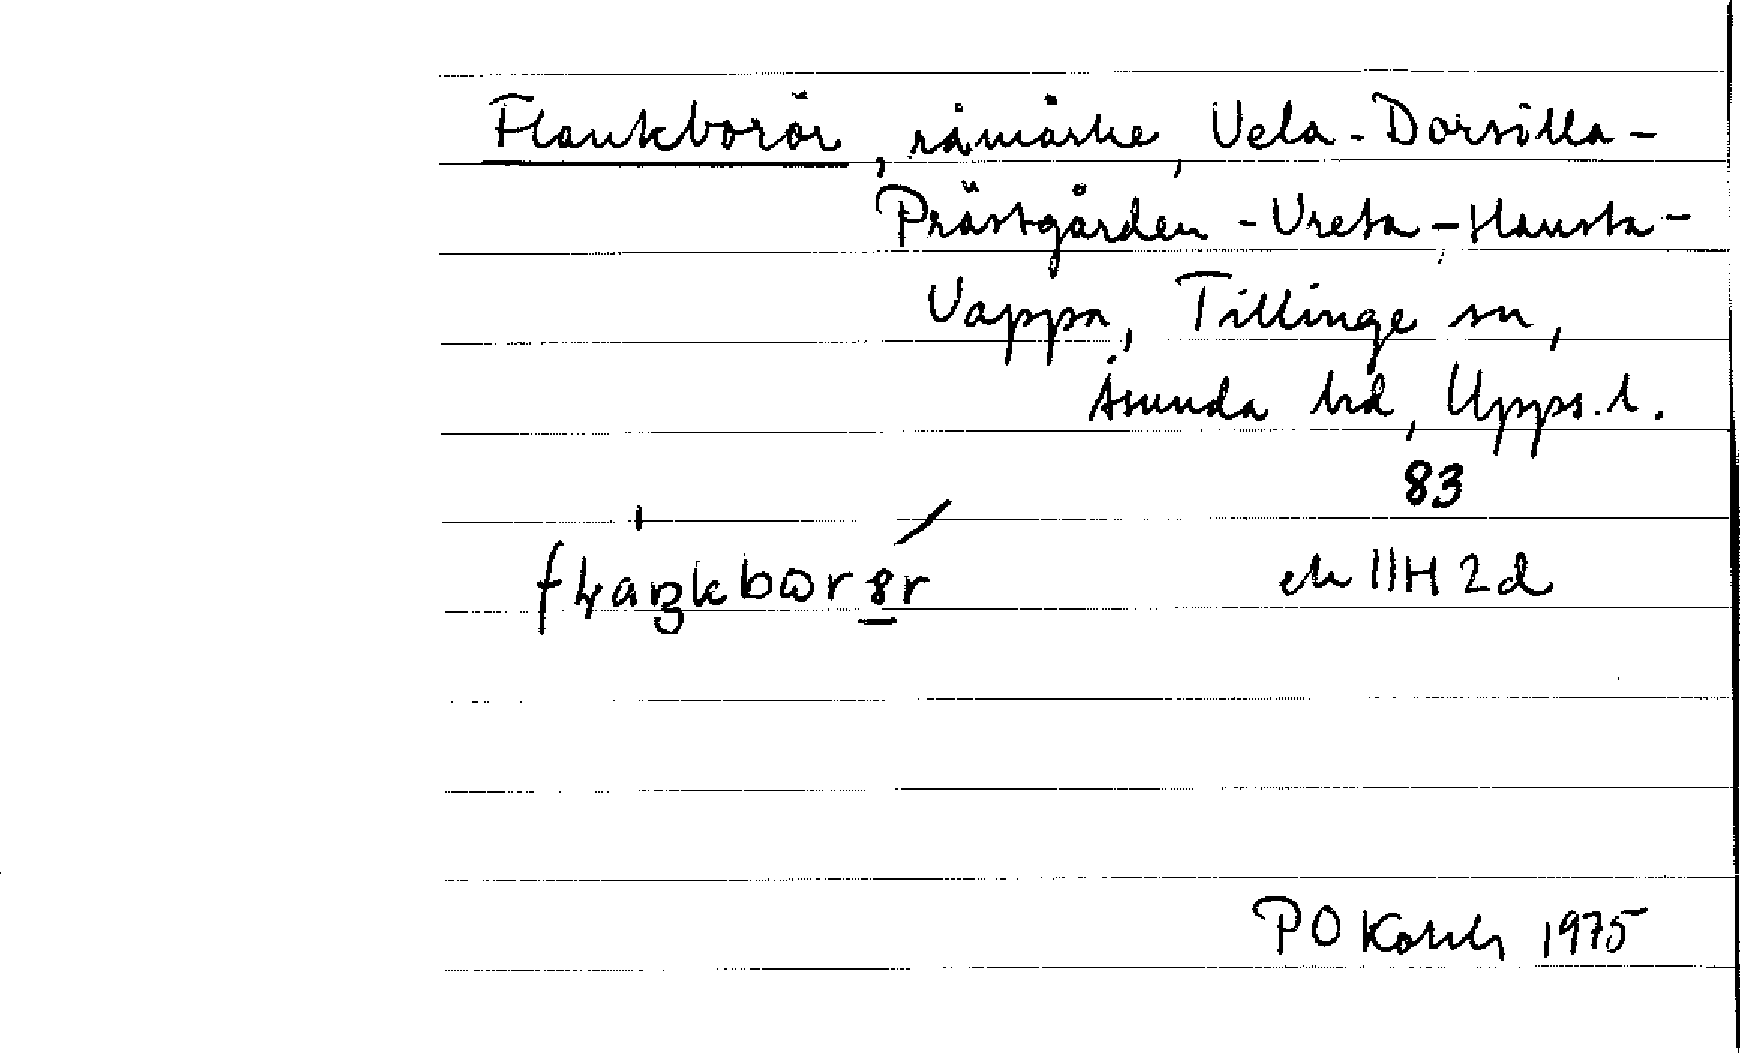 Flankborör, råmärke, Vela-Dorsilla-
Prästgården-Vreta-Hansta-
Vappa, Tillinge sn,
Åsunda hd, Upps.l.
83
ek 11H 2d
PO 1975